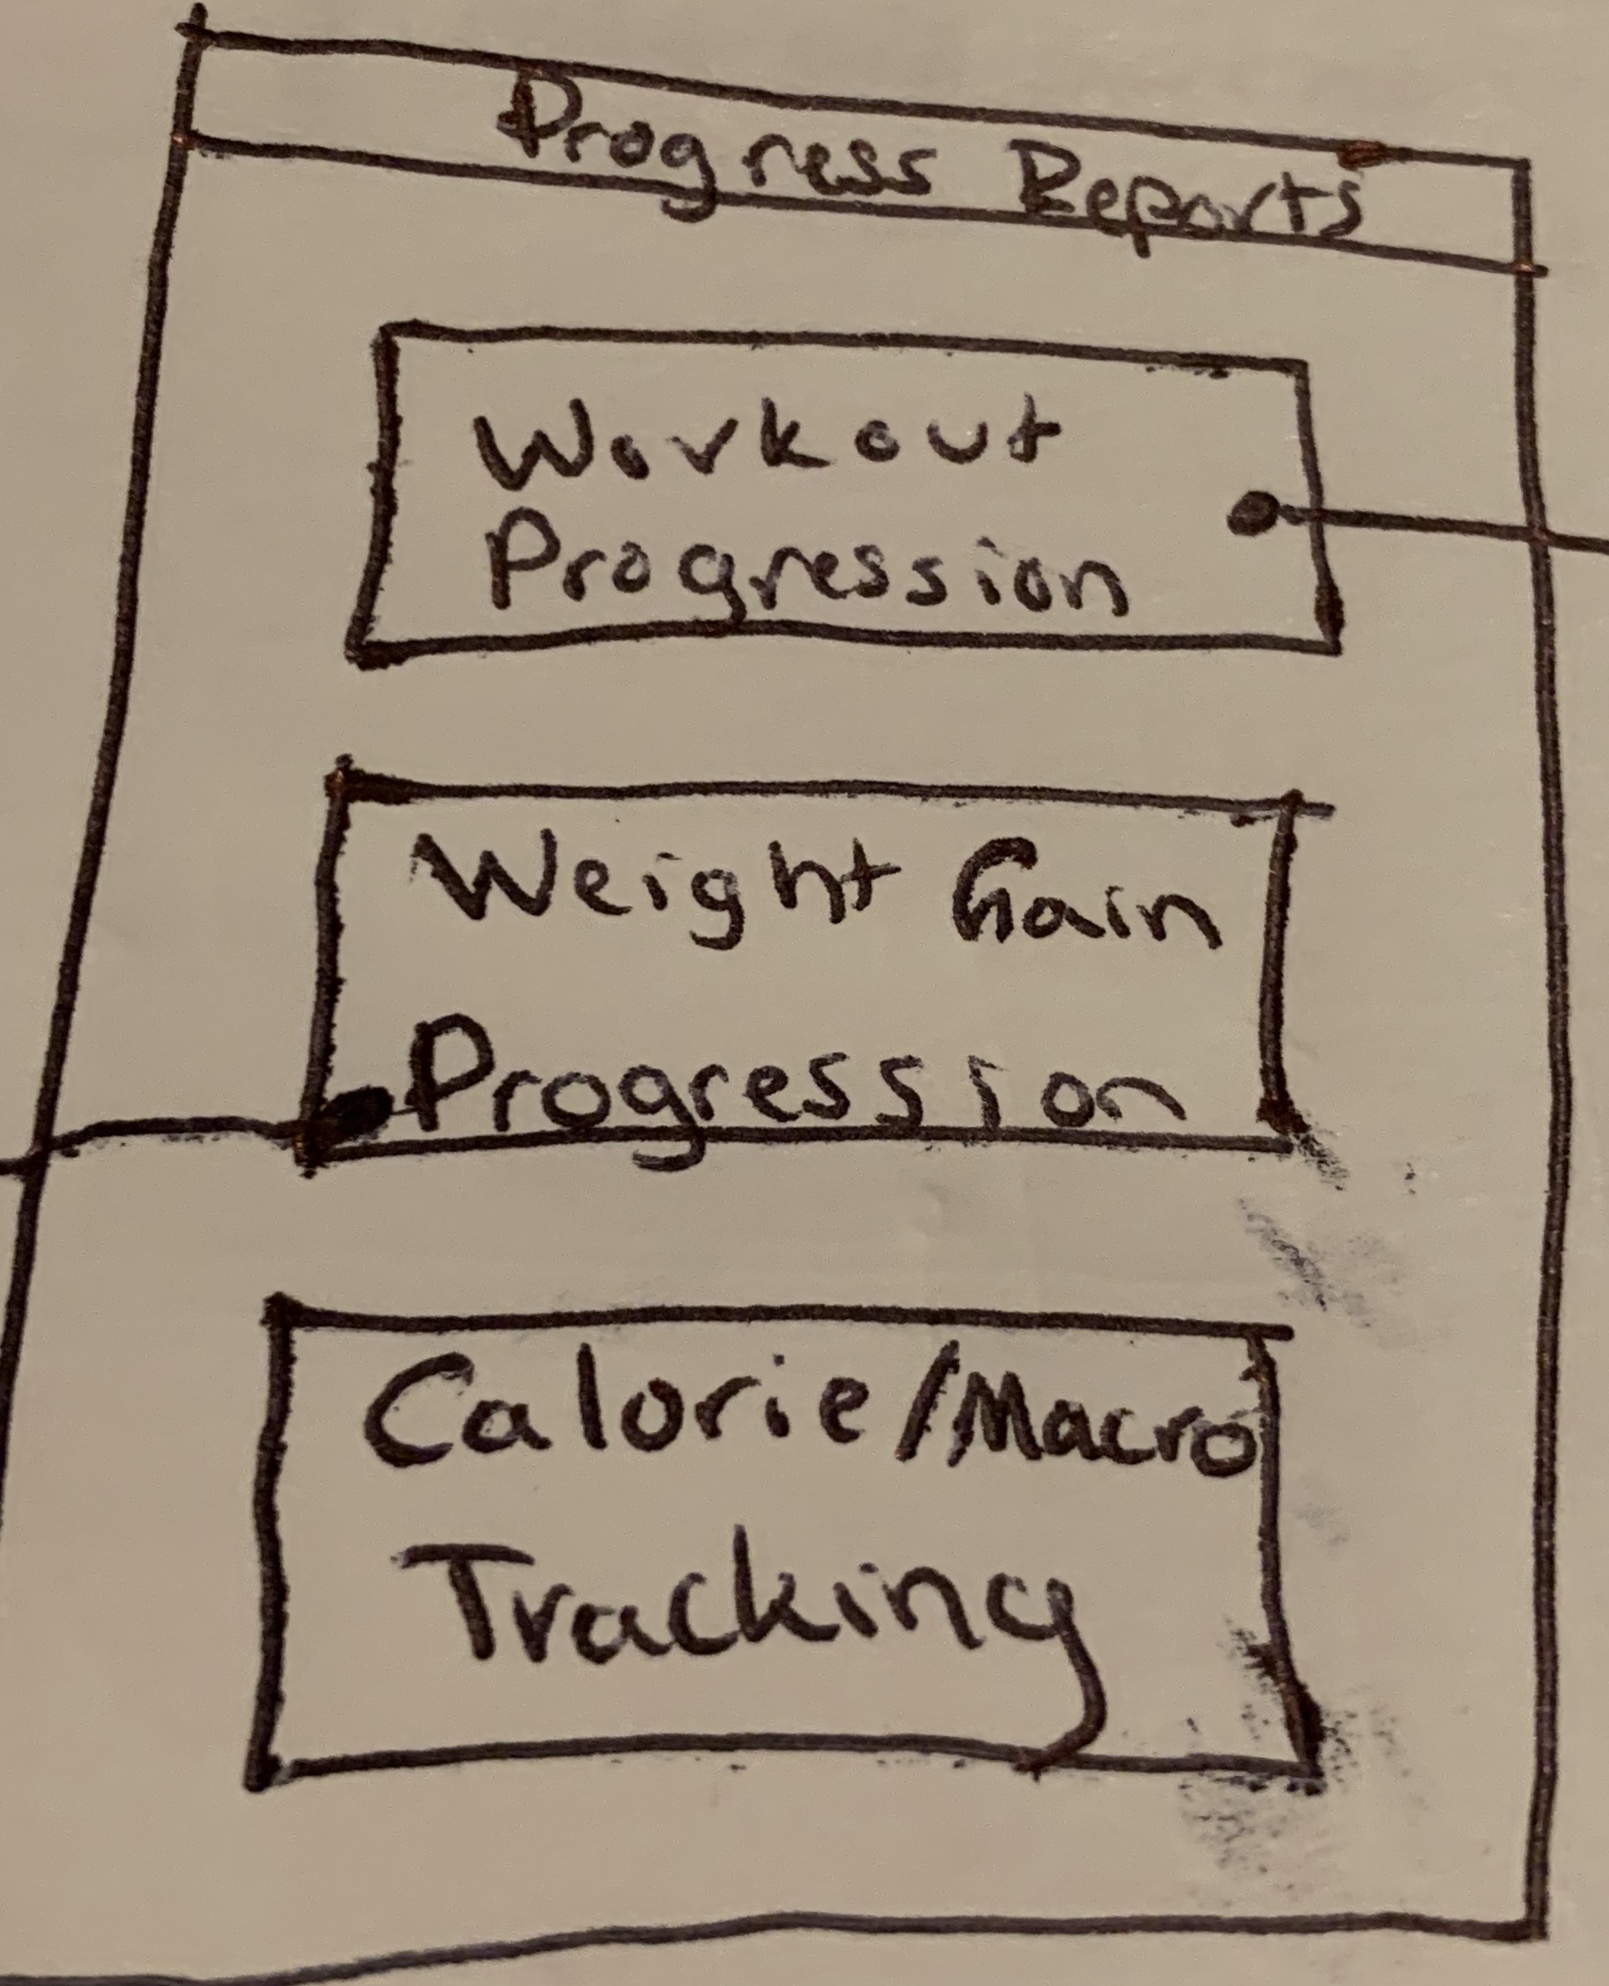 Progress Reports
Workout
Progression
Weight Gain
Progression
Calorie/Macro
Tracking